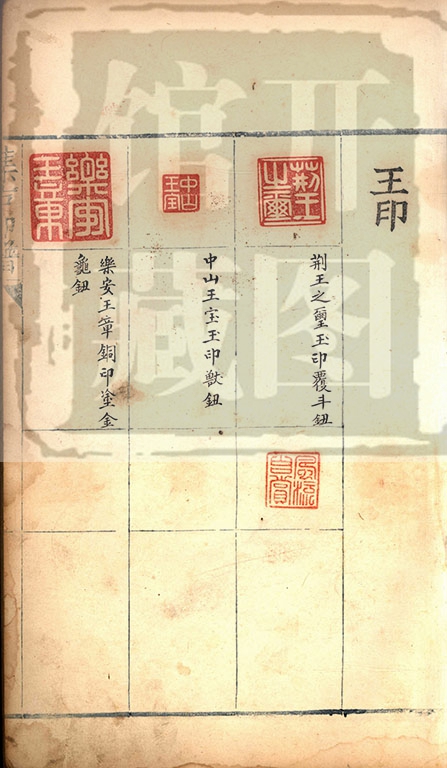 王印
荊王之璽
荊王之璽玉印覆斗鈕
中山王宝
中山王宝玉印獸鈕
樂安王章
樂安王章銅印塗金
龜鈕
开图
馆藏